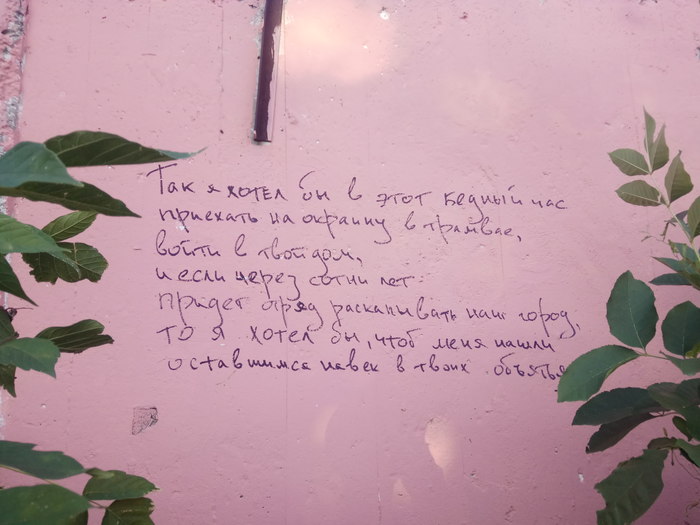 Так я хотел бы в этот бедный час
приехать на окраину в трамвае,
войти в твой дом,
и если через сотни лет
придет отряд раскапывать наш город,
то я хотел бы, чтоб меня нашли
оставшимся навек в твоих объятья